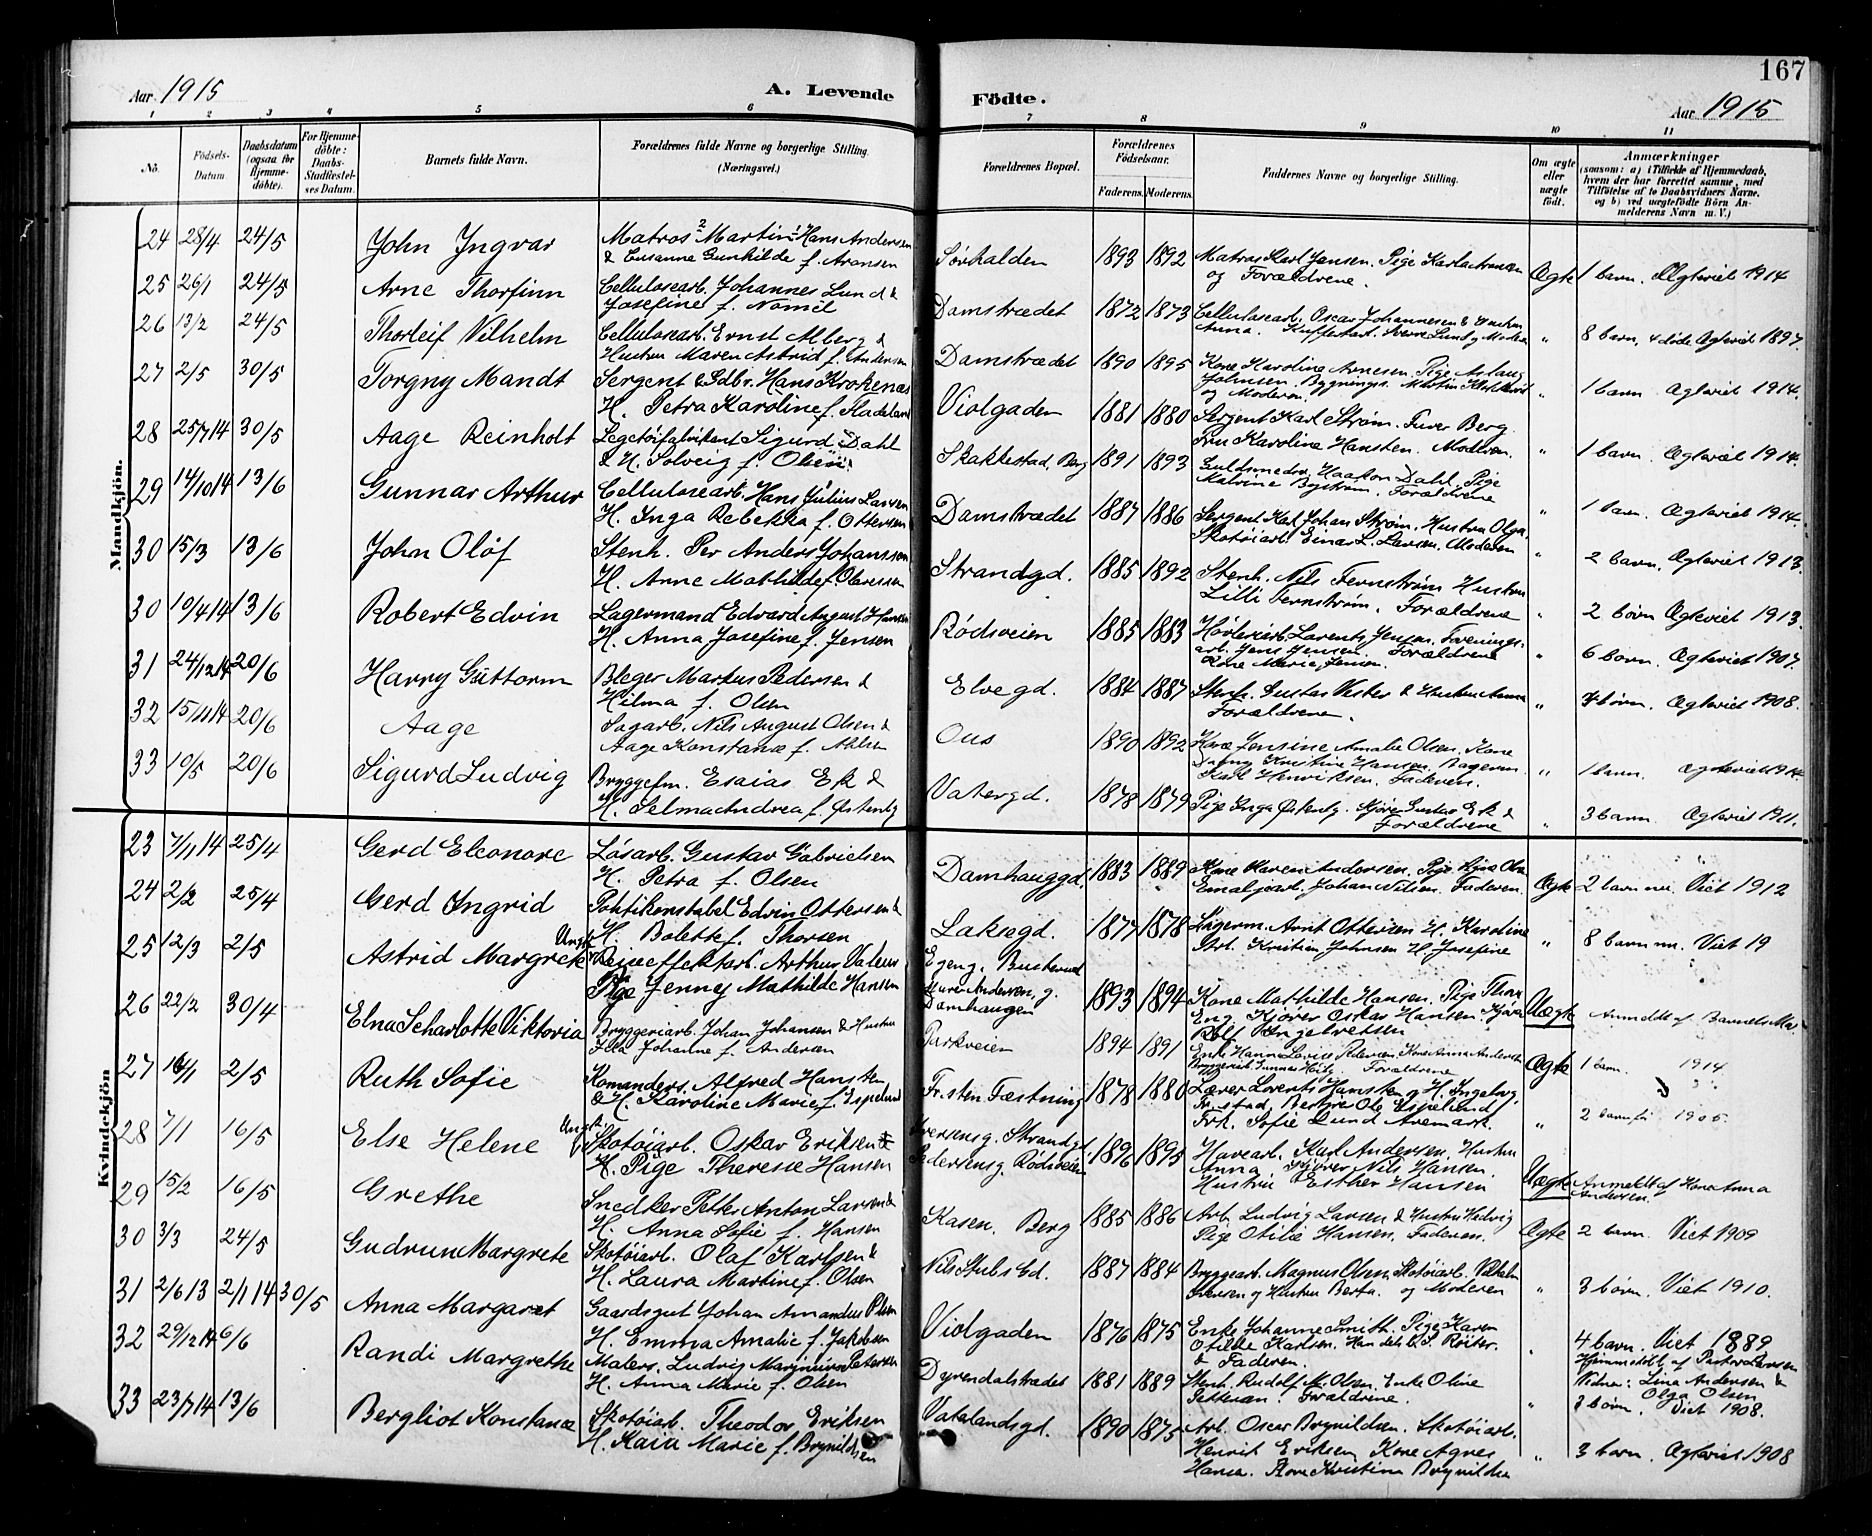 167
Aar 1915
A. Levende
Födte.
Aar 1915
1 2 3 4 5 6 7 8 9 10 11
No.
Födsels-Datum.
Daabsdatum (ogsaa for Hjemmedöbte).
For Hjemmedöbte: Daabs-Stadfæstelses Datum.
Barnets fulde Navn.
Forældrenes fulde Navne og borgerlige Stilling. (Næringsvei.)
Forældrenes Bopæl.
Forældrenes Födselsaar.
Faderens. Moderens.
Faddernes Navne og borgerlige Stilling.
Om ægte eller uægte födt.
Anmærkninger
(saasom: a) i Tilfælde af Hjemmedaab, hvem der har forrettet samme, med Tilföielse af to Daabsvidners Navne, og b) ved uægtefödte Börn Anmelderens Navn m. V.)
Mandkjön.
24 28/4 24/5 John Ingvar Matros Martin Hans Andersen
& Susanne Gunhilde f. Aronsen Sørhalden 1893 1892 Matros Karl Jensen. Pige Karla Aronsen
og Forældrene. Ægte 1 barn. Ægteviet 1914
25 26/1 24/5 Arne Thorfinn Cellulosearb. Johannes Lund &
Josefine f. Damstrædet 1872 1873 Cellulosearb. Oscar Johannesen & Hustru
Anna. Sverre Lund og Modren " 8 barn, 4 døde Ægteviet 1897.
26 13/2 24/5 Thorleif Vilhelm Cellulosearb. Ernst Alberg &
Hustru Maren Astrid f. Andersen Damstrædet 1890 1895 Kone Karoline Arnesen. Pige Aslaug
Johnsen. Bygnings. Martin
og Moderen. " 1 barn Ægteviet 1914.
27 2/5 30/5 Torgny Mandt Sergent & Gdbr. Hans Krokenas
H. Petra Karoline f. Fladeland Violgaden 1881 1880 Sergent Karl Strøm. Furer Berg.
Fru Karoline Hansten. Moderen. " 1 barn Ægteviet 1914.
28 25/7 14 30/5 Aage Reinholt Legetøifabrikant Sigurd Dahl
& H. Solveig f. Olsen Skakkestad, Berg 1891 1893 Guldsmedsv. Haakon Dahl. Pige
Malvine Bystrøm. Forældrene " 1 barn. Ægteviet 1914.
29 14/10 14 13/6 Gunnar Arthur Cellulosearb. Hans Julius Larsen
H. Inga Rebekka f. Ottersen Damstrædet 1887 1886 Sergent Karl Johan Strøm. Hustru Olga.
Skotøiarb. Einar L. Larsen. Moderen " 2 barn. Ægteviet 1913.
30 15/3 13/6 John Olof Stenh. Per Anders Johansson
H. Anne Mathilde f. Olavesen Strandgd. 1885 1892 Stenh. Nils Fernstrøm Hustru
Lilli Fernstrøm. Forældrene " 2 børn Ægteviet 1913.
30 10/4 14 13/6 Robert Edvin Lagermand Edvard August Hansen
H. Anna Josefine f. Jensen Rødsveien 1885 1883 Høvleriarb. Laurents Jensen. Forenings-
arb. Jens Jensen. Forældrene
Kone Marie Jensen. " 6 børn. Ægteviet 1907.
31 24/12 14 20/6 Harry Guttorm Bleger Markus Pedersen &
Hilma f. Olsen Elvegd. 1884 1887 Stenh. Gustav Vester & Hustru Anna
Forældrene. " 4 børn. Ægteviet 1908.
32 15/11 14 20/6 Aage Sagarb. Nils August Olsen &
Aage Konstanse f. Ous 1890 1892 Kone Jensine Amalie Olsen, Kone
Dagny Kristine Hansen. Bagersv.
Karl Henriksen. Faderen. " 1 barn. Ægteviet 1914.
33 10/5 20/6 Sigurd Ludvig Bryggefm. Esaias Ek &
H. Selma Andrea f. Østenby Vatergd. 1878 1879 Pige Inga Østenby. Kjører Gustav Ek &
Forældrene " 3 barn. Ægteviet 1911.
Kvindekjön
23 7/11 14 25/4 Gerd Eleonore Løsarb. Gustav Gabrielsen
H. Petra f. Olsen Damhauggd. 1883 1889 Kone Maren Andersen. Pige Signe Olsen
Emaljearb. Johan Nilsen. Faderen. Ægte 2 barn nu. Viet 1912
24 2/2 25/4 Gerd Ingrid Politikonstabel Edvin Ottersen &
H. Bolette f. Thorsen Laksegd. 1877 1878 Lagerm. Arnt Ottersen H. Karoline
Arb. Kristian Johnsen H. Josefine " 8 barn nu. Viet 19
25 12/3 2/5 Astrid Margrete Ungk. Reiseeffektarb. Arthur Valeus
Pige Jenny Mathilde Hansen Egeng. Busterud
Murer Andersen, g.
Damhaugen 1893 1894 Kone Mathilde Hansen. Pige Thora
Eng. Kjører Oskar Hansen. Kjører
Rolf Ingelvretsen Uægte Anmeldt af Barnets Mor.
26 22/2 30/4 Elna Scharlotte Viktoria Bryggeriarb. Johan Johansen & Hustru
Ida Johanne f. Andersen Parkveien 1894 1891 Enke Hanne Lovise Pedersen. Kone Anna Andersen
Bryggeriarb. Gunnar Forældrene Ægte 1 barn. 1914
27 16/1 2/5 Ruth Sofie Komanders. Alfred Hansten
& H. Karoline Marie f. Espelund Fr.sten Fæstning 1878 1880 Lærer Lorents Hansten og H. Ingeborg,
Fr.stad, Bestyr. Ole Espelund
Frk. Sofie Lund Aremark. " 2 barn 1905.
28 7/1 16/5 Else Helene Ungk. Skotøiarb. Oskar Eriksen &
H. Pige Therese Hansen Iversensg. Strandgd.
Pedersensg. Rødsveien 1896 1895 Havearb. Karl Andersen. Hustru
Anna. Kjører Nils Hansen.
Hustru Esther Hansen Uægte Anmeldt af Kone Anna
Andersen.
29 15/2 16/5 Grethe Snedker Petter Anton Larsen &
H. Anna Sofie f. Hansen Kasen, Berg 1885 1886 Arb. Ludvig Larsen & Hustru Hedvig
Pige Otilie Hansen. Faderen. Ægte 2 barn. Viet 1909
30 3/3 24/5 Gudrun Margrete Skotøiarb. Olaf Karlsen &
H. Laura Martine f. Olsen Nils Stubs Gd. 1887 1884 Bryggearb. Magnus Olsen, Skotøiarb. Vilhelm
Iversen og Hustru Berta. og Moderen " 3 børn. Viet 1910.
31 2/6 13 2/1 14 30/5 Anna Margaret Gaardsgut Johan Amandus Olsen
H. Emma Amalie f. Jakobsen Violgaden 1876 1875 Enke Johanne Smith. Pige Karen
Otilde Karlsen. Handelsb. S. Røiter.
& Faderen. " 4 barn. Viet 1889
Hjemmedøbt af Pastor Larsen
Vidne: Lina Andersen &
Olga Olsen
32 29/12 14 6/6 Randi Margrethe Malers. Ludvig Marinius Petersen
H. Anna Marie f. Olsen Dyrendalstrædet 1881 1889 Stenh. Rudolf M. Olsen. Enke Oline
Pettersen. Forældrene. " 3 børn. Viet 1908.
33 23/7 14 13/6 Bergliot Konstanse Skotøiarb. Theodor Eriksen
H. Kaia Marie f. Brynildsen Vaterlandsgd. 1890 1875 Arb. Oscar Brynildsen. Skotøiarb.
Henrik Eriksen Kone Agnes
Hansen. Kone Kristine Brynildsen " 3 barn. Ægteviet 1908